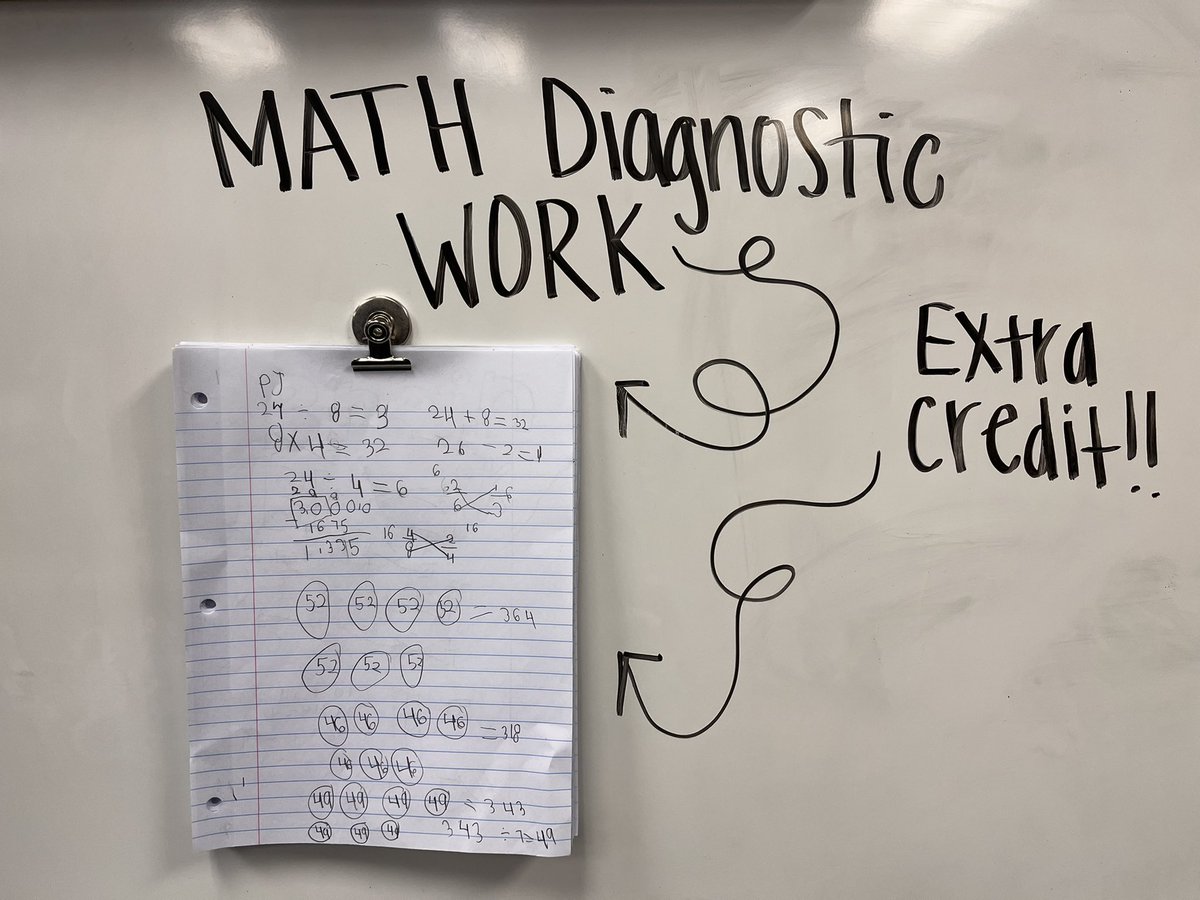 MATH Diagnostic
WORK
Extra
Credit!!
PJ
24 ÷ 8 = 3 24 + 8 = 32
8 x 4 = 32
24 ÷ 4 = 6
30000
1675
16 4 2 16
8 4
52 52 52 52 = 364
52 52 52
46 46 46 46 = 318
46 46 46
49 49 49 49 = 343
49 49 49 343 ÷ 7 = 49